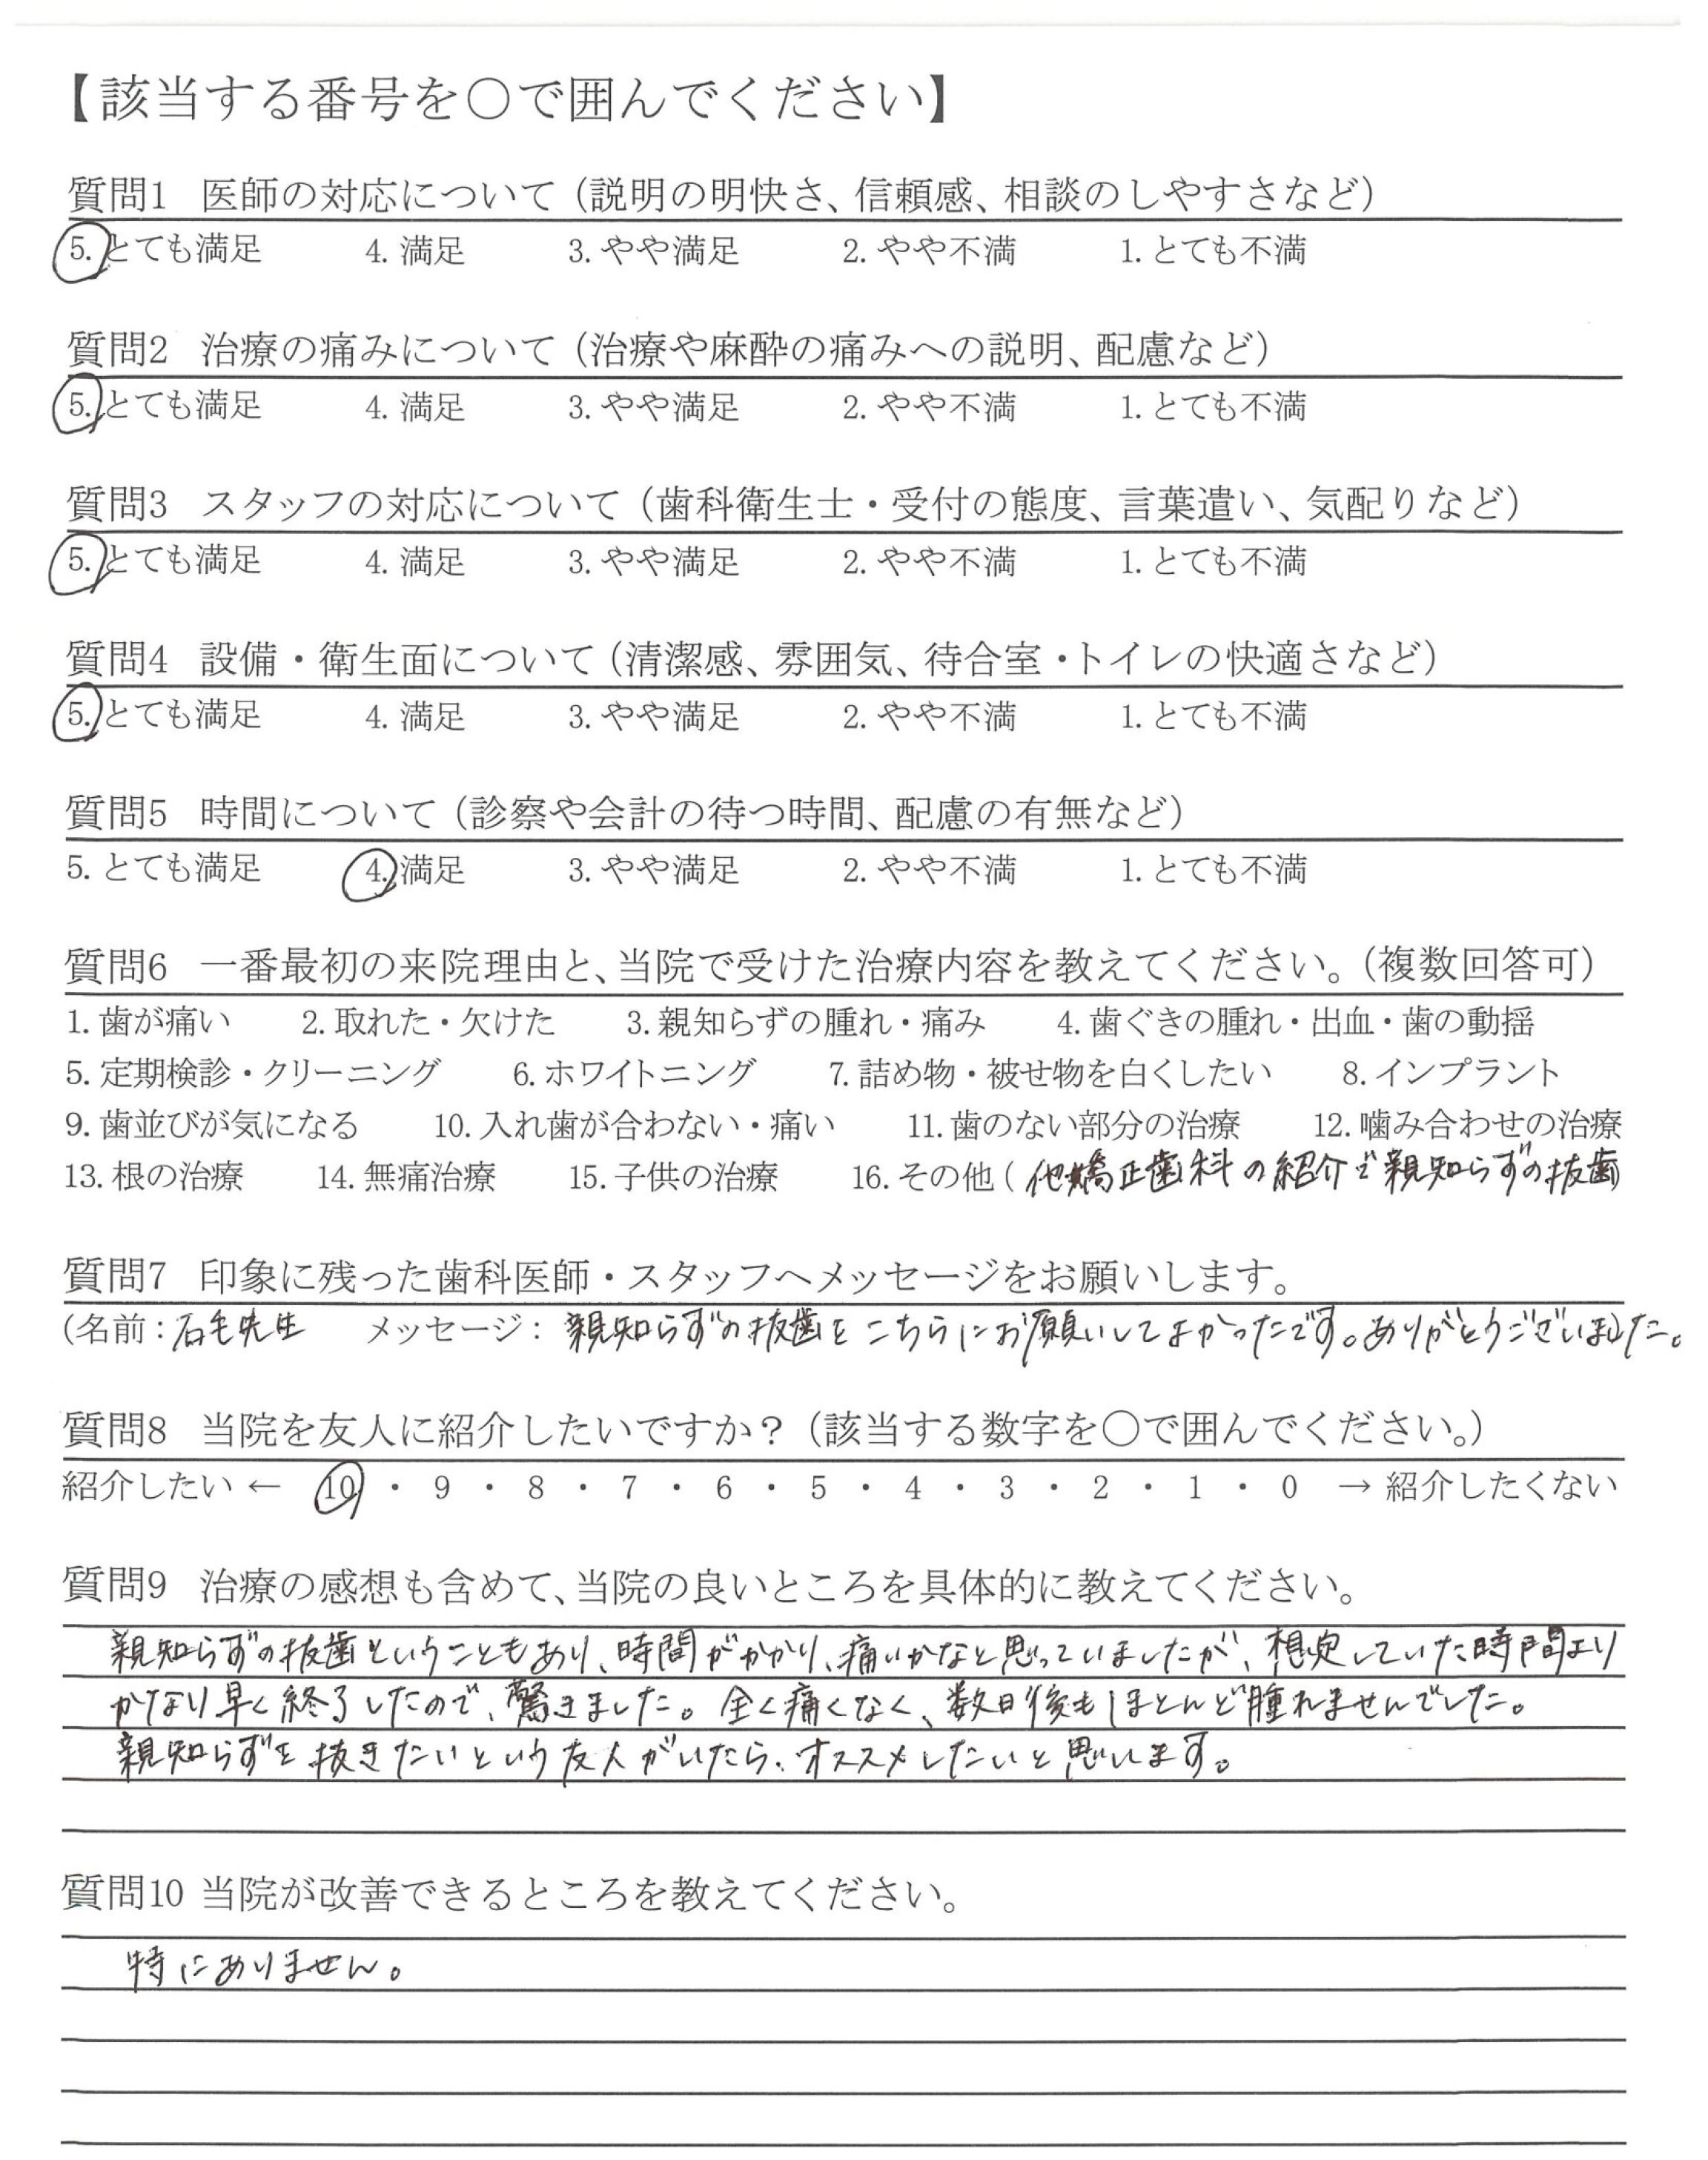 【該当する番号を○で囲んでください】
質問1 医師の対応について（説明の明快さ、信頼感、相談のしやすさなど）
5. とても満足 4. 満足 3. やや満足 2. やや不満 1. とても不満
質問2 治療の痛みについて（治療や麻酔の痛みへの説明、配慮など）
5. とても満足 4. 満足 3. やや満足 2. やや不満 1. とても不満
質問3 スタッフの対応について（歯科衛生士・受付の態度、言葉遣い、気配りなど）
5. とても満足 4. 満足 3. やや満足 2. やや不満 1. とても不満
質問4 設備・衛生面について（清潔感、雰囲気、待合室・トイレの快適さなど）
5. とても満足 4. 満足 3. やや満足 2. やや不満 1. とても不満
質問5 時間について（診察や会計の待つ時間、配慮の有無など）
5. とても満足 4. 満足 3. やや満足 2. やや不満 1. とても不満
質問6 一番最初の来院理由と、当院で受けた治療内容を教えてください。（複数回答可）
1. 歯が痛い 2. 取れた・欠けた 3. 親知らずの腫れ・痛み 4. 歯ぐきの腫れ・出血・歯の動揺
5. 定期検診・クリーニング 6. ホワイトニング 7. 詰め物・被せ物を白くしたい 8. インプラント
9. 歯並びが気になる 10. 入れ歯が合わない・痛い 11. 歯のない部分の治療 12. 噛み合わせの治療
13. 根の治療 14. 無痛治療 15. 子供の治療 16. その他（他矯正歯科の紹介で親知らずの抜歯）
質問7 印象に残った歯科医師・スタッフへメッセージをお願いします。
（名前：石毛先生 メッセージ：親知らずの抜歯をこちらにお願いしてよかったです。ありがとうございました。
質問8 当院を友人に紹介したいですか？（該当する数字を○で囲んでください。）
紹介したい ← 10 ・ 9 ・ 8 ・ 7 ・ 6 ・ 5 ・ 4 ・ 3 ・ 2 ・ 1 ・ 0 → 紹介したくない
質問9 治療の感想も含めて、当院の良いところを具体的に教えてください。
親知らずの抜歯ということもあり、時間がかかり、痛いかなと思っていましたが、想定していた時間より
かなり早く終了したので、驚きました。全く痛くなく、数日後もほとんど腫れませんでした。
親知らずを抜きたいという友人がいたら、オススメしたいと思います。
質問10 当院が改善できるところを教えてください。
特にありません。